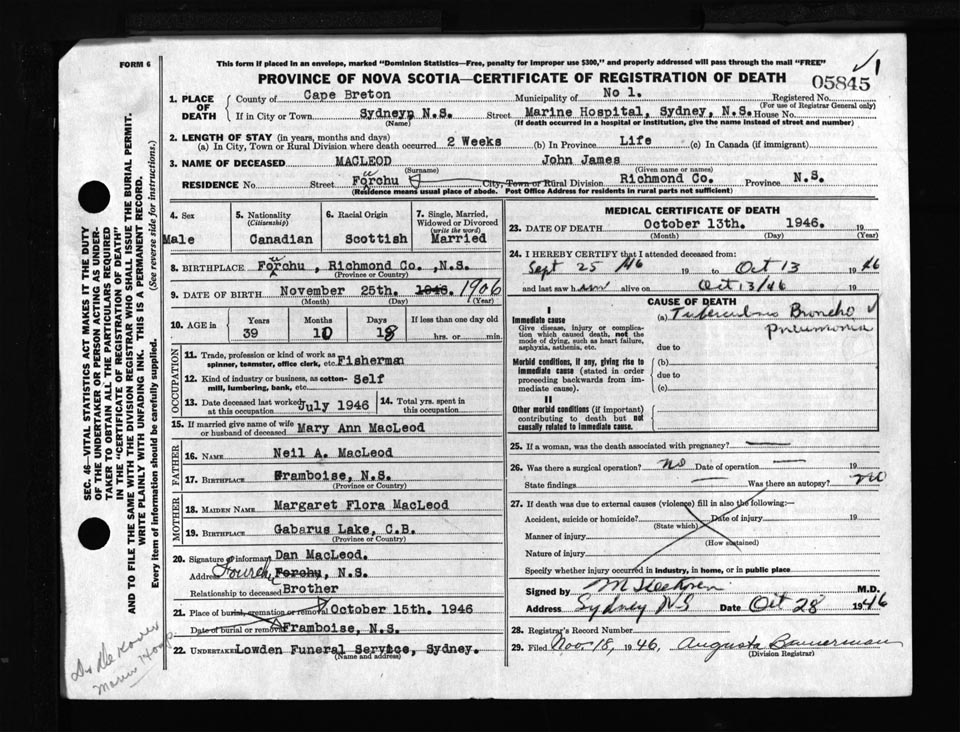 FORM 6
This form if placed in an envelope, marked "Dominion Statistics—Free, penalty for improper use $300," and properly addressed will pass through the mail "FREE"
PROVINCE OF NOVA SCOTIA—CERTIFICATE OF REGISTRATION OF DEATH
05845
1. PLACE OF DEATH
County of Cape Breton Municipality of No 1. Registered No.
(For use of Registrar General only)
If in City or Town Sydney, N.S. Street Marine Hospital, Sydney, N.S. House No.
(Name) (If death occurred in a hospital or institution, give the name instead of street and number)
2. LENGTH OF STAY (in years, months and days)
(a) In City, Town or Rural Division where death occurred 2 Weeks (b) In Province Life (c) In Canada (if immigrant)
3. NAME OF DECEASED MACLEOD John James
(Surname) (Given name or names)
RESIDENCE No. Street Forchu u City, Town or Rural Division Richmond Co. Province N.S.
(Residence means usual place of abode. Post Office Address for residents in rural parts not sufficient)
4. Sex
Male
5. Nationality
(Citizenship)
Canadian
6. Racial Origin
Scottish
7. Single, Married, Widowed or Divorced
(write the word)
Married
8. BIRTHPLACE Forchu u, Richmond Co. ,N.S.
(Province or Country)
9. DATE OF BIRTH November 25th. 1946. 1906
(Month) (Day) (Year)
10. AGE in
Years Months Days If less than one day old
39 10 18 hrs. or min.
OCCUPATION
11. Trade, profession or kind of work as spinner, teamster, office clerk, etc. Fisherman
12. Kind of industry or business, as cotton-mill, lumbering, bank, etc. Self
13. Date deceased last worked at this occupation July 1946
14. Total yrs. spent in this occupation
15. If married give name of wife or husband of deceased Mary Ann MacLeod
FATHER
16. NAME Neil A. MacLeod
17. BIRTHPLACE Framboise, N.S.
(Province or Country)
MOTHER
18. MAIDEN NAME Margaret Flora MacLeod
19. BIRTHPLACE Gabarus Lake, C.B.
(Province or Country)
20. Signature of informant Dan MacLeod.
Address Fourchu Forchu, N.S.
Relationship to deceased Brother
21. Place of burial, cremation or removal October 15th. 1946
Date of burial or removal Framboise, N.S.
22. UNDERTAKER Lowden Funeral Service, Sydney.
(Name and address)
MEDICAL CERTIFICATE OF DEATH
23. DATE OF DEATH October 13th. 1946. 19
(Month) (Day) (Year)
24. I HEREBY CERTIFY that I attended deceased from:
Sept 25 /46 19 to Oct 13 1946
and last saw him alive on Oct 13/46 19
CAUSE OF DEATH
I
Immediate cause
Give disease, injury or complication which caused death, not the mode of dying, such as heart failure, asphyxia, asthenia, etc.
(a) Tuberculous Broncho Pneumonia
due to
Morbid conditions, if any, giving rise to immediate cause (stated in order proceeding backwards from immediate cause).
(b)
due to
(c)
II
Other morbid conditions (if important) contributing to death but not causally related to immediate cause.
25. If a woman, was the death associated with pregnancy?
26. Was there a surgical operation? No Date of operation 19
State findings Was there an autopsy? no
27. If death was due to external causes (violence) fill in also the following:—
Accident, suicide or homicide? Date of injury 19
(State which)
Manner of injury
(How sustained)
Nature of injury
Specify whether injury occurred in industry, in home, or in public place
Signed by M.D.
Address Sydney NS Date Oct 28 1946
28. Registrar's Record Number
29. Filed Nov. 18, 1946, Augusta Bannerman
(Division Registrar)
SEC. 46—VITAL STATISTICS ACT MAKES IT THE DUTY
OF THE UNDERTAKER OR PERSON ACTING AS UNDER-
TAKER TO OBTAIN ALL THE PARTICULARS REQUIRED
IN THE "CERTIFICATE OF REGISTRATION OF DEATH"
AND TO FILE THE SAME WITH THE DIVISION REGISTRAR WHO SHALL ISSUE THE BURIAL PERMIT.
WRITE PLAINLY WITH UNFADING INK. THIS IS A PERMANENT RECORD.
Every item of information should be carefully supplied. (See reverse side for instructions.)